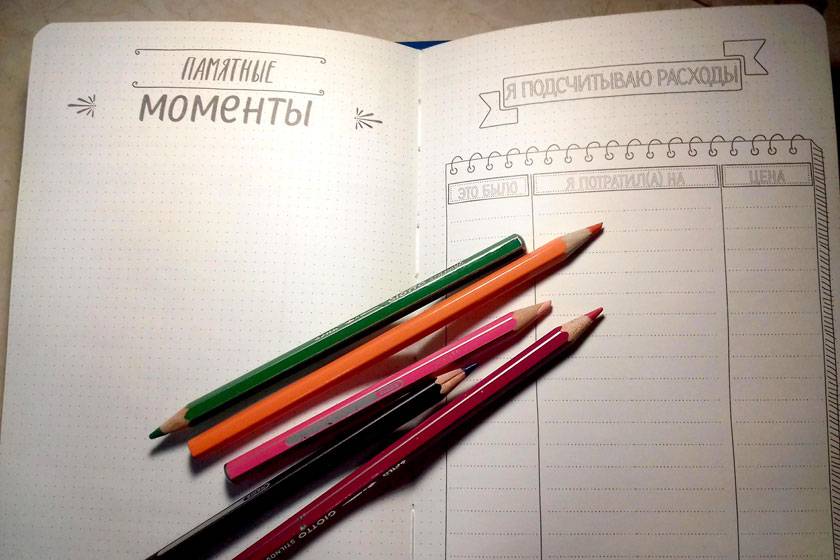 ПАМЯТНЫЕ
МОМЕНТЫ
Я ПОДСЧИТЫВАЮ РАСХОДЫ
ЭТО БЫЛО
Я ПОТРАТИЛ(А) НА
ЦЕНА
GIOTTO STILNOVO